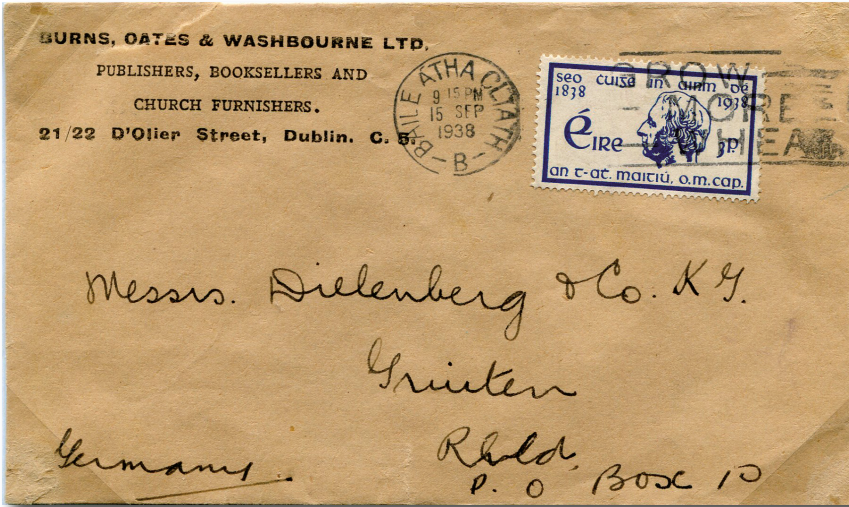 BURNS, OATES & WASHBOURNE LTD.
PUBLISHERS, BOOKSELLERS AND
CHURCH FURNISHERS.
21/22 D'Olier Street, Dublin. C. 5.
BAILE ATHA CLIATH
9 15 PM
15 SEP
1938
- B -
GROW
MORE
WHEAT
seo cuige in ainm Dé
1838 1938
éire 3p.
an t-at. maitiú, o.m.cap.
Messrs. Dielenberg & Co. K G.
Gruiten
Rhld.
P. O Box 10
Germany.